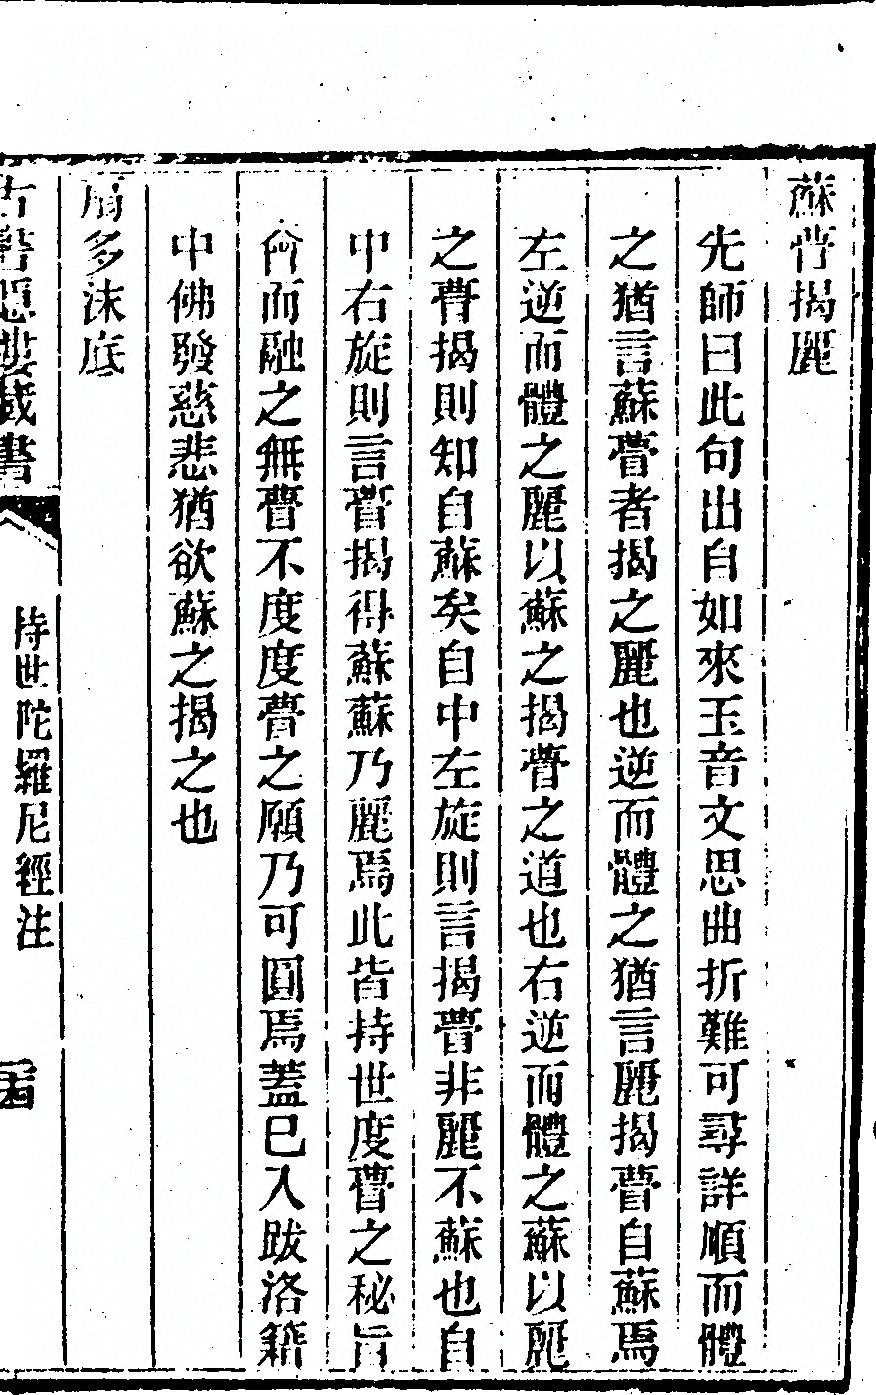 蘇瞢揭麗
先師曰此句出自如來玉音文思曲折難可尋詳順而體
之猶言蘇瞢者揭之麗也逆而體之猶言麗揭瞢自蘇焉
左逆而體之麗以蘇之揭瞢之道也右逆而體之蘇以麗
之瞢揭則知自蘇矣自中左旋則言揭瞢非麗不蘇也自
中右旋則言瞢揭得蘇蘇乃麗焉此皆持世度瞢之秘旨
而融之無瞢不度度瞢之願乃可圓焉蓋已入跋洛籍
中佛發慈悲猶欲蘇之揭之也
扇多沫底
古書隱樓藏書
持世陀羅尼經注